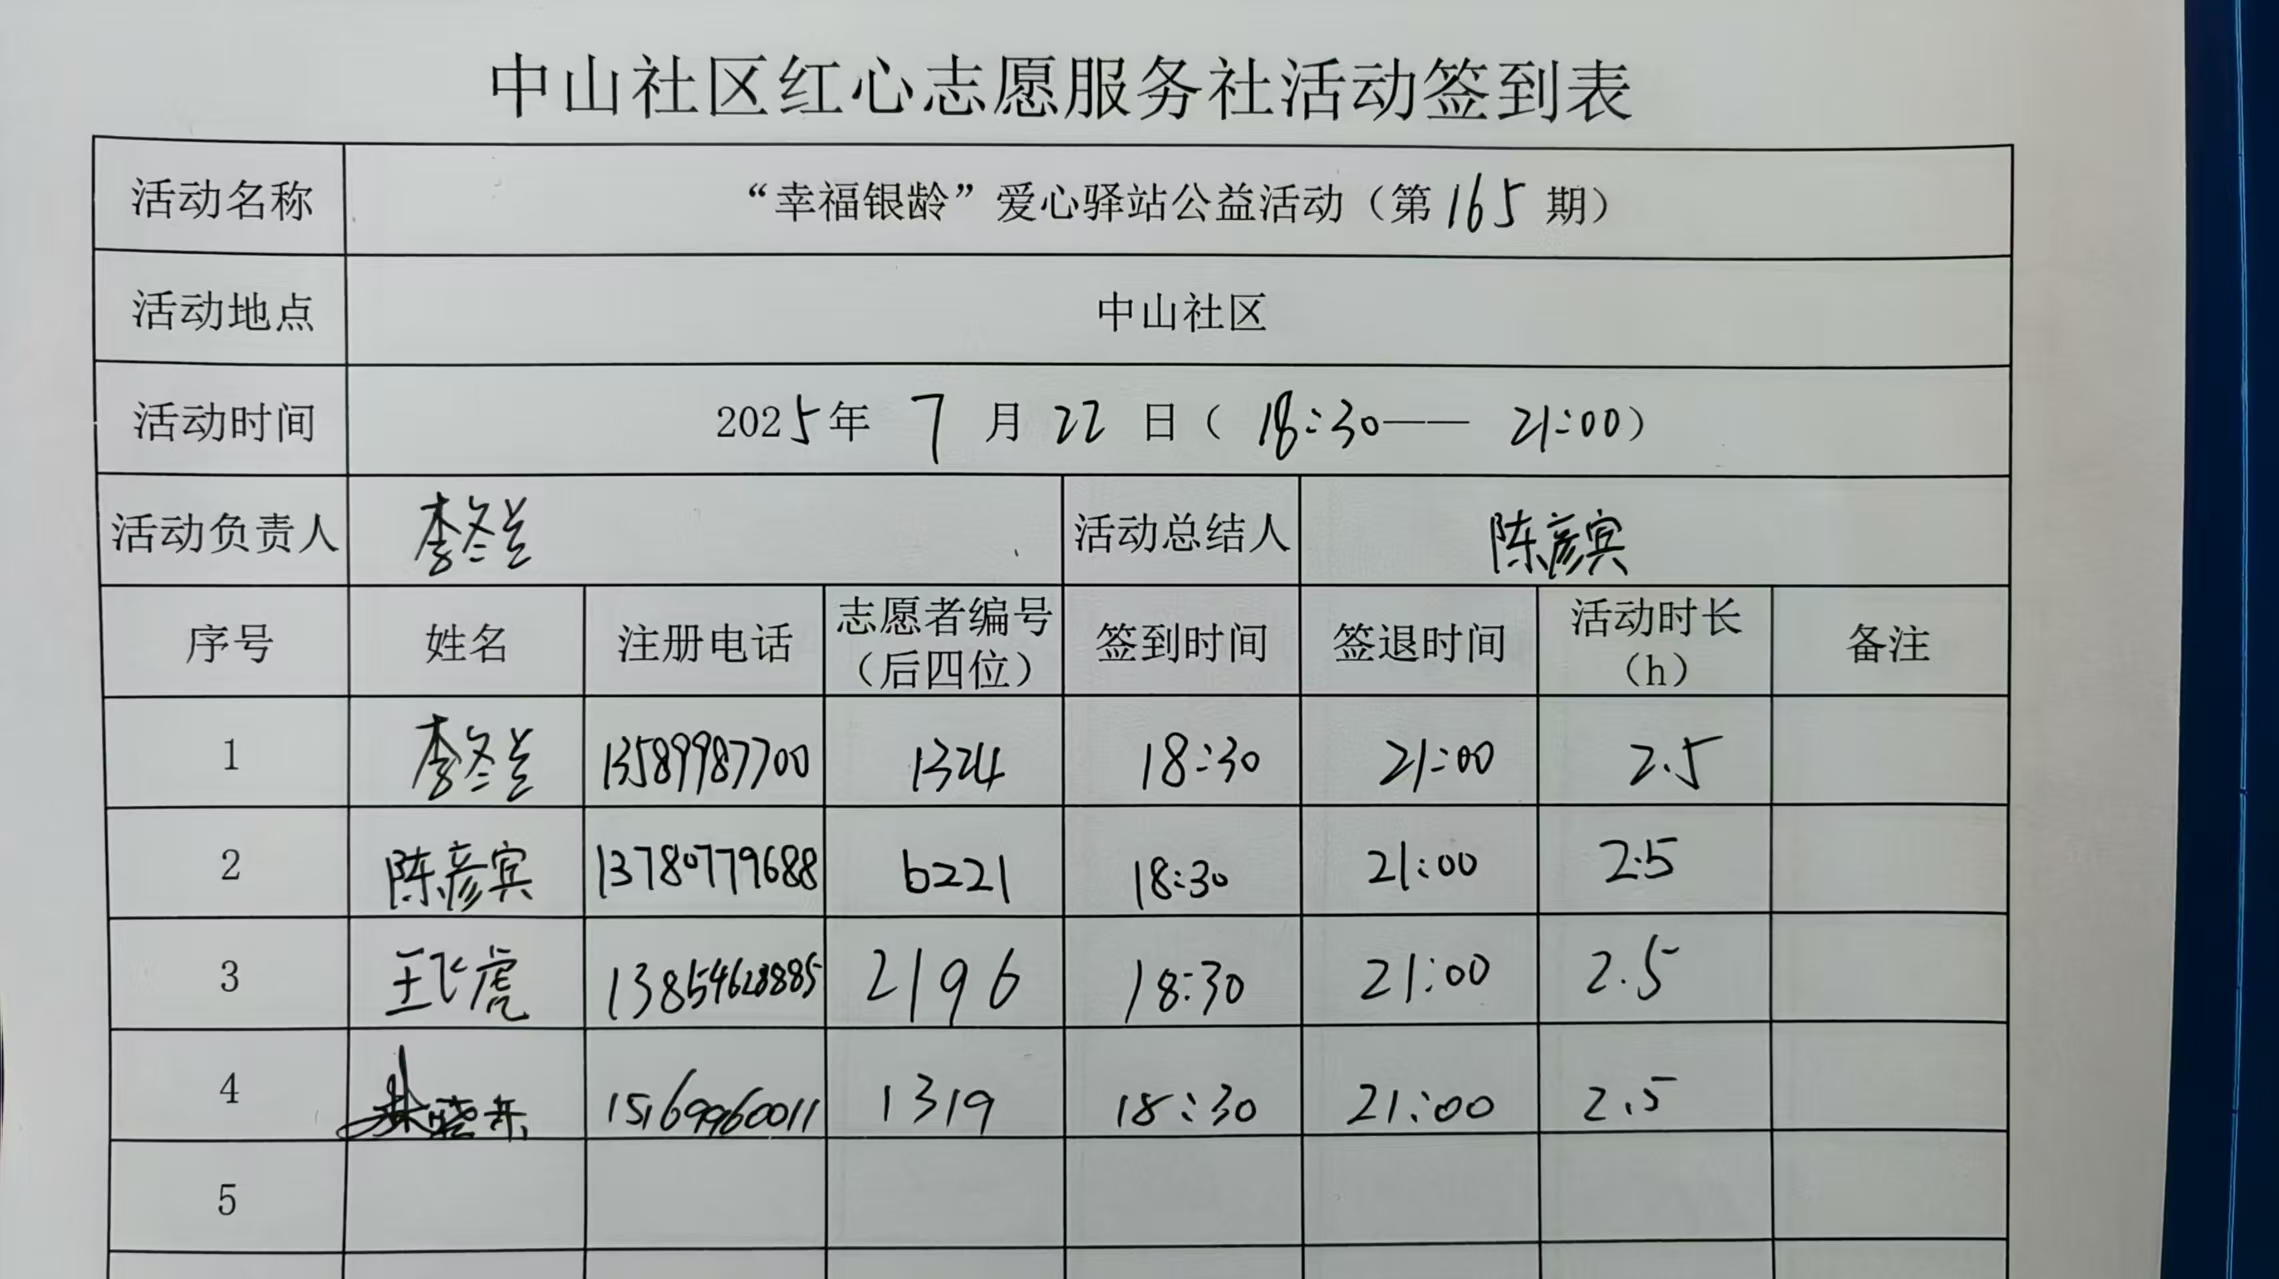 中山社区红心志愿服务社活动签到表
活动名称 “幸福银龄”爱心驿站公益活动（第165期）
活动地点 中山社区
活动时间 2025年 7 月 22 日（ 18:30—— 21:00）
活动负责人 李冬兰 活动总结人 陈彦宾
序号 姓名 注册电话 志愿者编号（后四位） 签到时间 签退时间 活动时长（h） 备注
1 李冬兰 13589987700 1324 18:30 21:00 2.5
2 陈彦宾 13780779688 6221 18:30 21:00 2.5
3 王飞虎 13854628885 2196 18:30 21:00 2.5
4 晓东 15169960011 1319 18:30 21:00 2.5
5